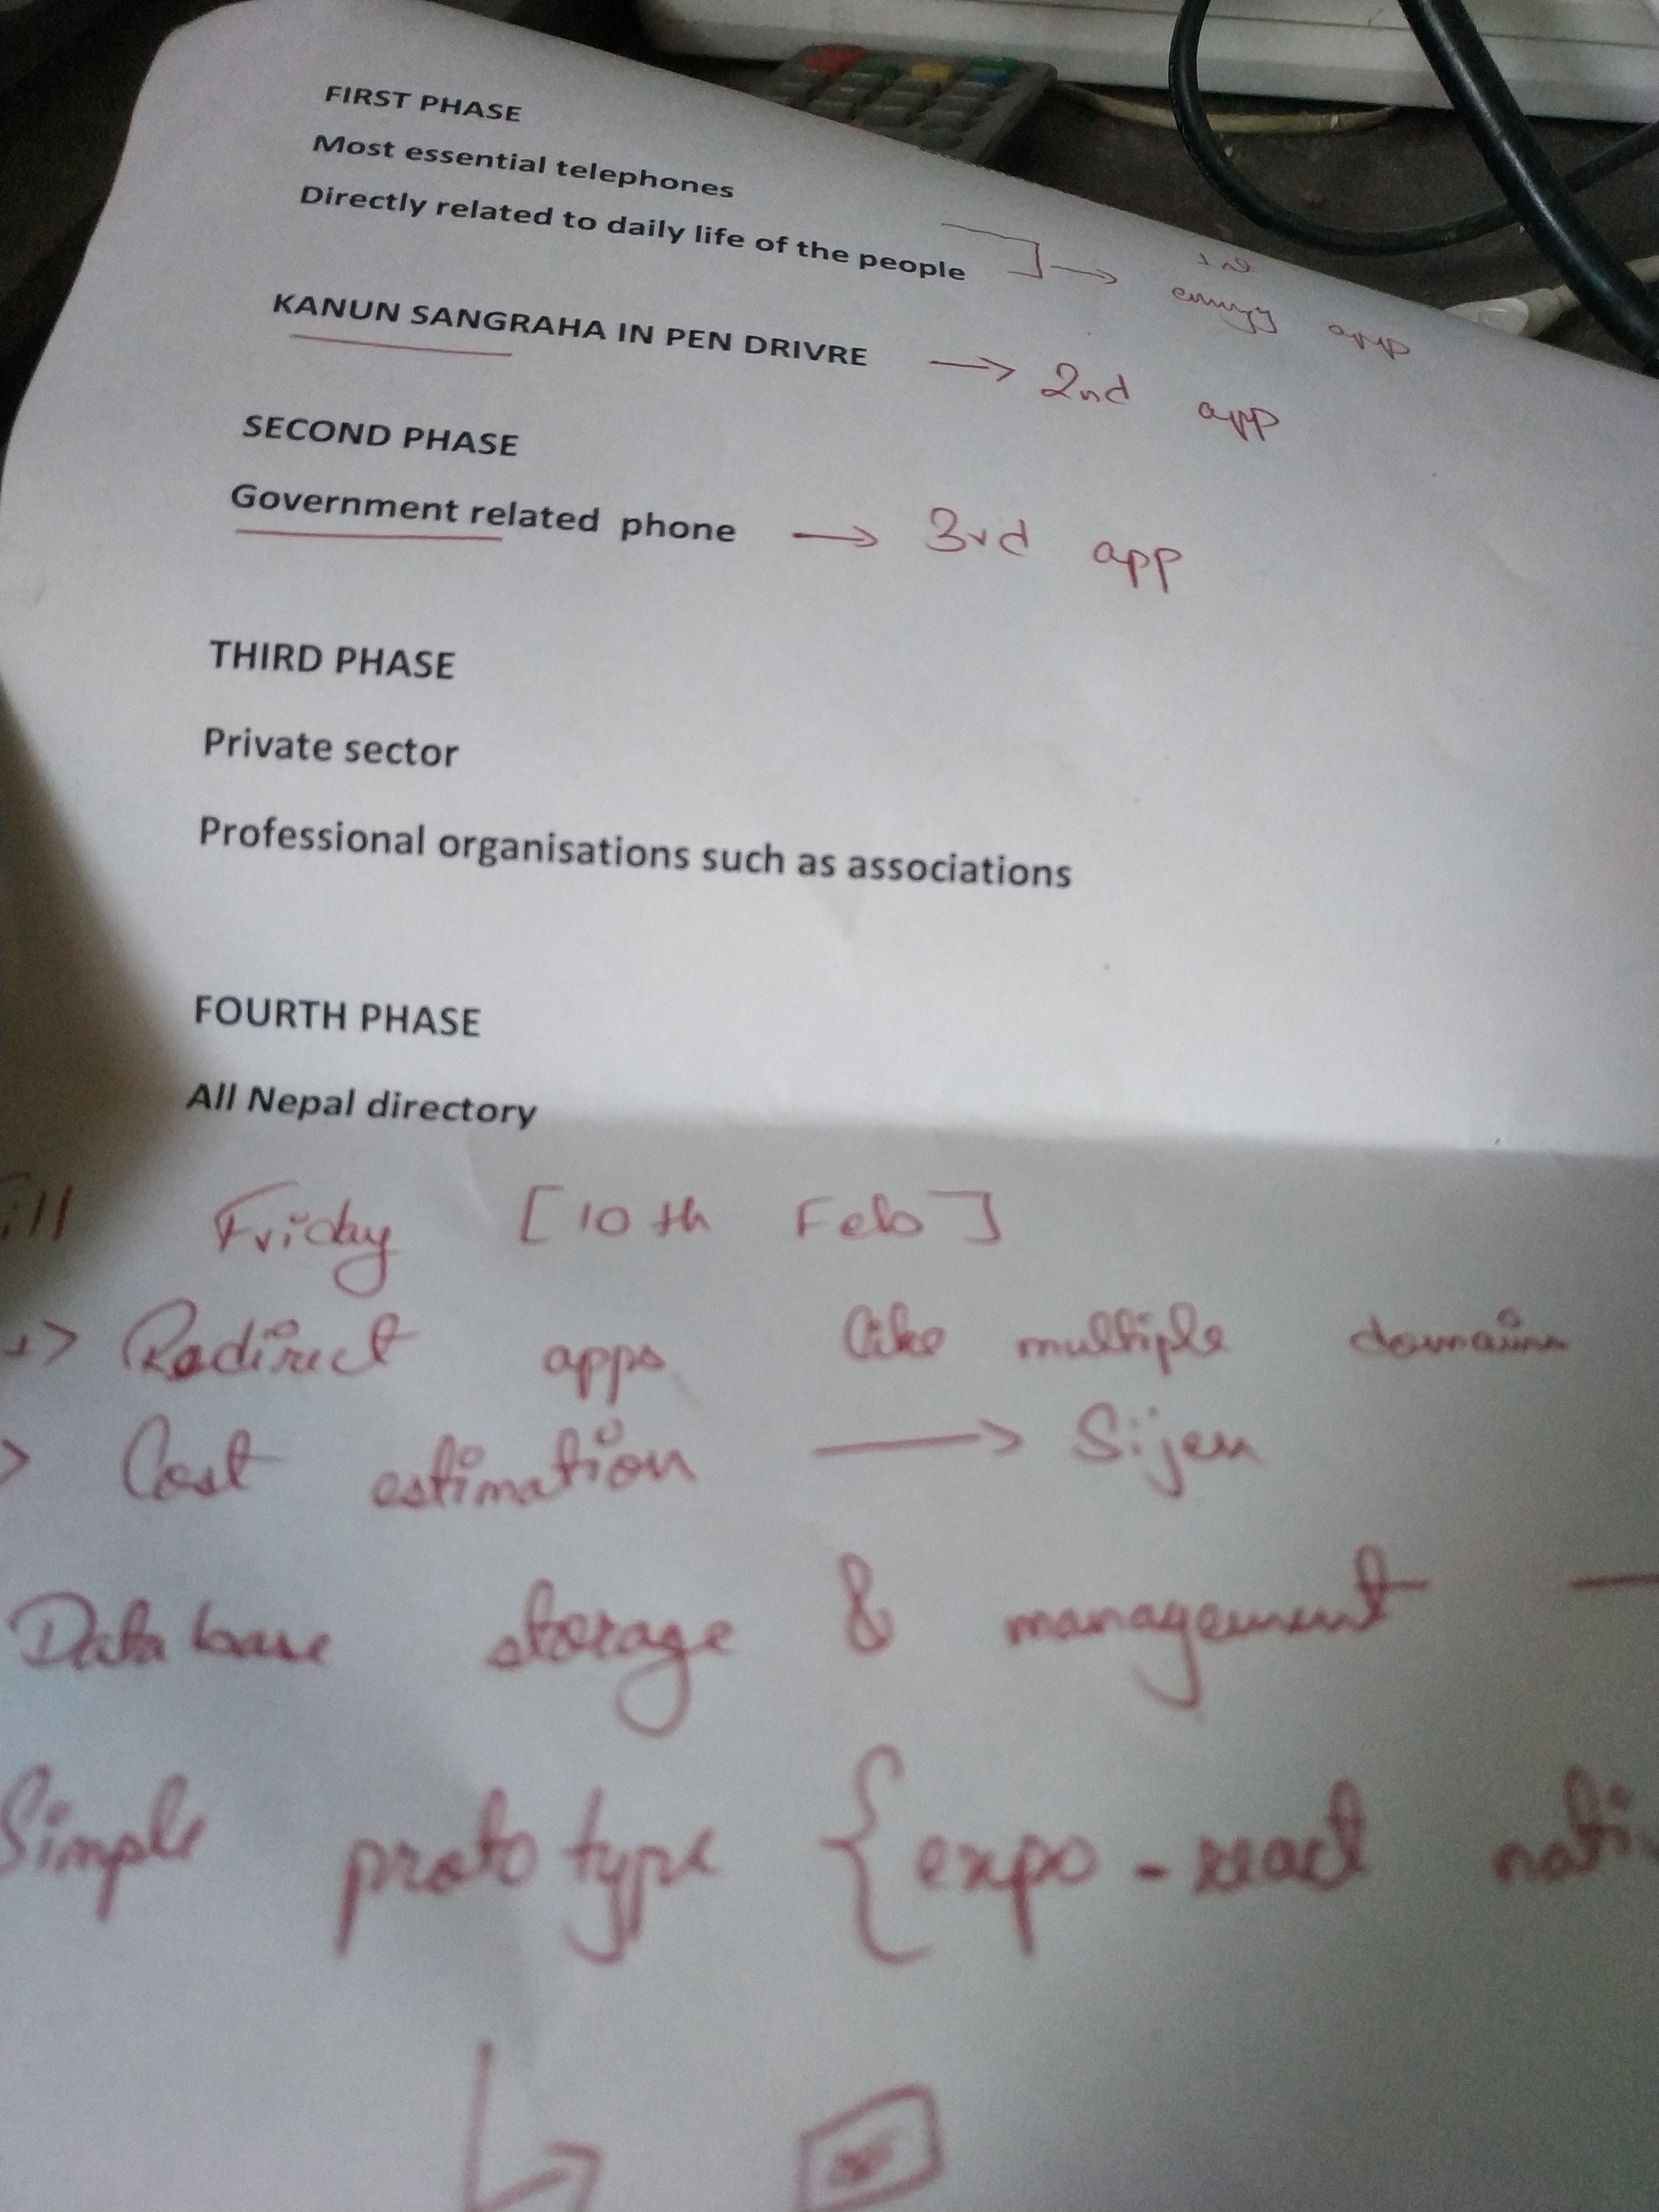 FIRST PHASE
Most essential telephones
Directly related to daily life of the people
app
KANUN SANGRAHA IN PEN DRIVRE → 2nd app
SECOND PHASE
Government related phone → 3rd app
THIRD PHASE
Private sector
Professional organisations such as associations
FOURTH PHASE
All Nepal directory
Friday [10th Feb]
Redirect apps like multiple domains
Cost estimation → Sijen
Database storage & management
Simple prototype { expo - react